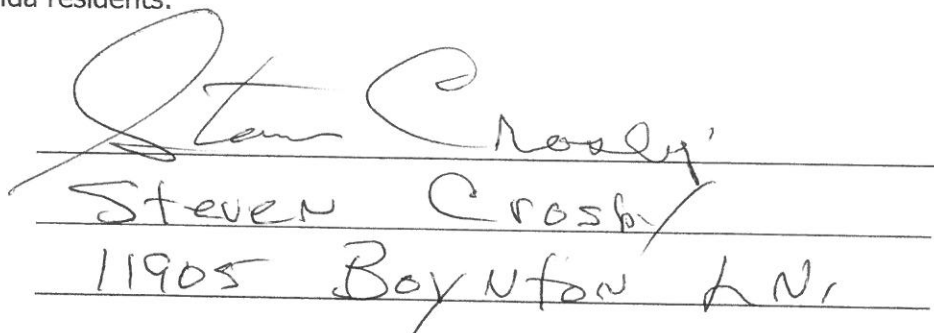 nda residents.
Steven Crosby
Steven Crosby
11905 Boynton LN.